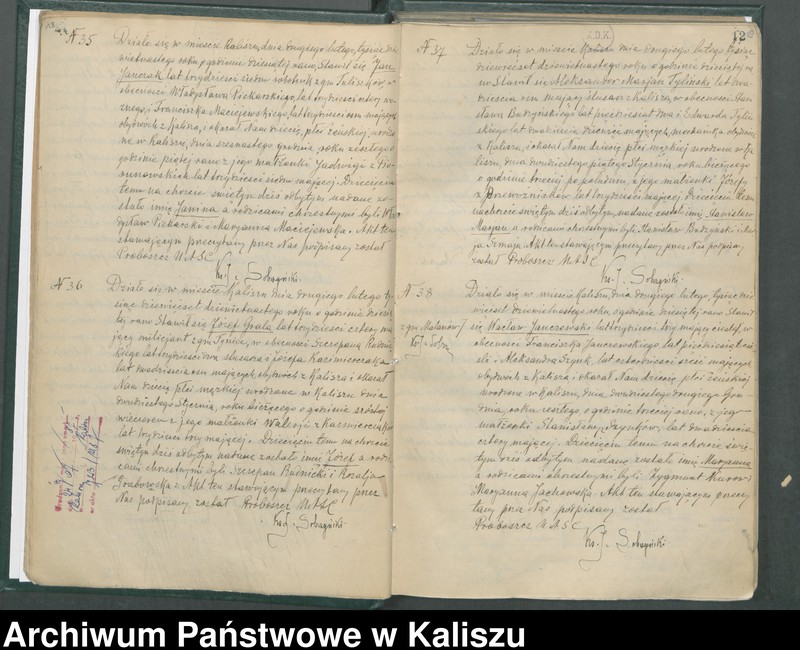 N 35
Działo się w mieście Kaliszu, dnia drugiego lutego, tysiąc dzie
więtnastego roku o godzinie dziesiątej rano, Stawił się Jan
Janczak lat trzydzieści siedm robotnik z gm Tuliszków, w
obecności Władysława Piekarskiego, lat trzydzieści cztery
i Franciszka Maciejewskiego, lat trzydzieści osm mających
obydwóch z Kalisza, i okazał Nam dziecię, płci żeńskiej, urodzo
ne w Kaliszu, dnia szesnastego grudnia roku zeszłego o
godzinie piątej rano z jego małżonki Jadwigi z
lat trzydzieści siedm mającej. Dziecięciu
temu na chrzcie świętym dziś odbytym nadane zo
stało imię Janina a rodzicami chrzestnymi byli Wła
dysław Piekarski i Maryanna Maciejewska. Akt ten
stawającym przeczytany przez Nas podpisany został
Proboszcz U.A.S.C.
Ks. J. Sobczyński
N 36
Działo się w mieście Kaliszu dnia drugiego lutego ty
siąc dziewięćset dziewiętnastego roku o godzinie dziesią
tej rano Stawił się Józef Grala lat trzydzieści cztery ma
jący milicjant z gm Tyniec, w obecności Szczepana
lat trzydzieści dwa ślusarza i Józefa Kaźmierczaka
lat dwadzieścia osm mających, obydwóch z Kalisza i okazał
Nam dziecię płci męzkiej urodzone w Kaliszu dnia
dwudziestego Stycznia, roku bieżącego o godzinie szóstej
wieczorem z jego małżonki Waleryi z Kaźmierczaków
lat trzydzieści trzy mającej. Dziecięciu temu na chrzcie
świętym dziś odbytym nadane zostało imię Józef a rodzi
cami chrzestnymi byli Szczepan i Rozalja
Grabowska. Akt ten stawającym przeczytany przez
Nas podpisany został Proboszcz U.A.S.C.
Ks. J. Sobczyński
Z.D.K.
12
N 37
Działo się w mieście Kaliszu dnia drugiego lutego tysiąc
dziewięćset dziewiętnastego roku o godzinie dziesiątej ra
no Stawił się Aleksander Marjan Tyliński lat dwa
dzieścia osm mający ślusarz z Kalisza, w obecności Sta
nisława Budzyńskiego lat pięćdziesiąt dwa i Edwarda Tyliń
skiego lat dwadzieścia dziewięć mających, obydwóch
z Kalisza, i okazał Nam dziecię płci męzkiej urodzone w Ka
liszu, dnia dwudziestego piątego Stycznia, roku bieżącego
o godzinie trzeciej po południu, z jego małżonki Józefy
z lat trzydzieści mającej. Dziecięciu temu
na chrzcie świętym dziś odbytym, nadane zostało imię Stanisław
Marjan, a rodzicami chrzestnymi byli Stanisław Budzyński i
Akt ten stawającym przeczytany przez Nas podpisany
został Proboszcz U.A.S.C.
Ks. J. Sobczyński
N 38
z gm Malanów
Ks. J. Sobcz
Działo się w mieście Kaliszu, dnia drugiego lutego, tysiąc dzie
więćset dziewiętnastego roku o godzinie dziesiątej rano Stawił
się Wacław Janczewski lat trzydzieści trzy mający w
obecności Franciszka Janczewskiego lat pięćdziesiąt
i Aleksandra lat czterdzieści sześć mających
obydwóch z Kalisza i okazał Nam dziecię, płci żeńskiej
urodzone w Kaliszu, dnia dwudziestego drugiego Gru
dnia, roku zeszłego o godzinie trzeciej rano, z jego
małżonki Stanisławy z lat dwadzieścia
cztery mającej. Dziecięciu temu na chrzcie świę
tym dziś odbytym nadane zostało imię Maryanna
a rodzicami chrzestnymi byli Zygmunt i
Maryanna Jachowska. Akt ten stawającym przeczy
tany przez Nas podpisany został
Proboszcz U.A.S.C.
Ks. J. Sobczyński
Archiwum Państwowe w Kaliszu